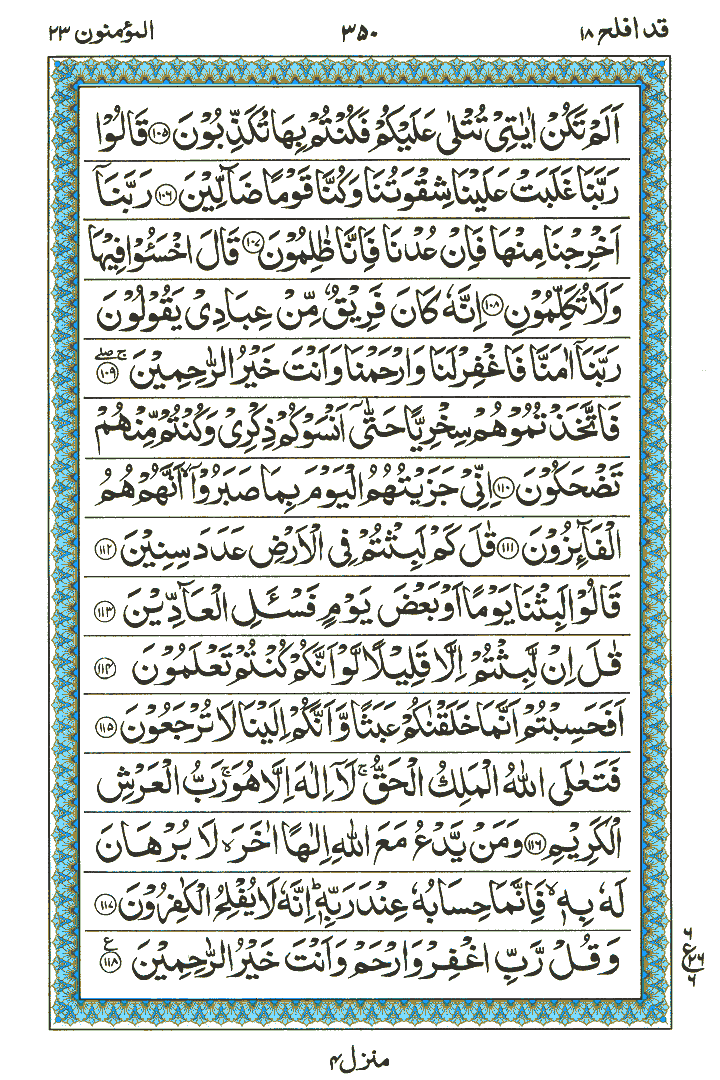 قد افلح ١٨ ٣٥٠ المؤمنون ٢٣
اَلَمْ تَكُنْ اٰیٰتِیْ تُتْلٰی عَلَیْكُمْ فَكُنْتُمْ بِهَا تُكَذِّبُوْنَ ﴿١٠٥﴾ قَالُوْا
رَبَّنَا غَلَبَتْ عَلَیْنَا شِقْوَتُنَا وَكُنَّا قَوْمًا ضَآلِّیْنَ ﴿١٠٦﴾ رَبَّنَاۤ
اَخْرِجْنَا مِنْهَا فَاِنْ عُدْنَا فَاِنَّا ظٰلِمُوْنَ ﴿١٠٧﴾ قَالَ اخْسَـُٔوْا فِیْهَا
وَلَا تُكَلِّمُوْنِ ﴿١٠٨﴾ اِنَّهٗ كَانَ فَرِیْقٌ مِّنْ عِبَادِیْ یَقُوْلُوْنَ
رَبَّنَاۤ اٰمَنَّا فَاغْفِرْ لَنَا وَارْحَمْنَا وَاَنْتَ خَیْرُ الرّٰحِمِیْنَ ﴿١٠٩﴾ ۚۖ
فَاتَّخَذْتُمُوْهُمْ سِخْرِیًّا حَتّٰۤی اَنْسَوْكُمْ ذِكْرِیْ وَكُنْتُمْ مِّنْهُمْ
تَضْحَكُوْنَ ﴿١١٠﴾ اِنِّیْ جَزَیْتُهُمُ الْیَوْمَ بِمَا صَبَرُوْۤا ۙ اَنَّهُمْ هُمُ
الْفَآئِزُوْنَ ﴿١١١﴾ قٰلَ كَمْ لَبِثْتُمْ فِی الْاَرْضِ عَدَدَ سِنِیْنَ ﴿١١٢﴾
قَالُوْا لَبِثْنَا یَوْمًا اَوْ بَعْضَ یَوْمٍ فَسْـَٔلِ الْعَآدِّیْنَ ﴿١١٣﴾
قٰلَ اِنْ لَّبِثْتُمْ اِلَّا قَلِیْلًا لَّوْ اَنَّكُمْ كُنْتُمْ تَعْلَمُوْنَ ﴿١١٤﴾
اَفَحَسِبْتُمْ اَنَّمَا خَلَقْنٰكُمْ عَبَثًا وَّاَنَّكُمْ اِلَیْنَا لَا تُرْجَعُوْنَ ﴿١١٥﴾
فَتَعٰلَی اللّٰهُ الْمَلِكُ الْحَقُّ ۚ لَاۤ اِلٰهَ اِلَّا هُوَ ۚ رَبُّ الْعَرْشِ
الْكَرِیْمِ ﴿١١٦﴾ وَمَنْ یَّدْعُ مَعَ اللّٰهِ اِلٰهًا اٰخَرَ ۙ لَا بُرْهَانَ
لَهٗ بِهٖ ۙ فَاِنَّمَا حِسَابُهٗ عِنْدَ رَبِّهٖ ؕ اِنَّهٗ لَا یُفْلِحُ الْكٰفِرُوْنَ ﴿١١٧﴾
وَقُلْ رَّبِّ اغْفِرْ وَارْحَمْ وَاَنْتَ خَیْرُ الرّٰحِمِیْنَ ﴿١١٨﴾ ع
٦ ع ٢٦ ٦
منزل ٤